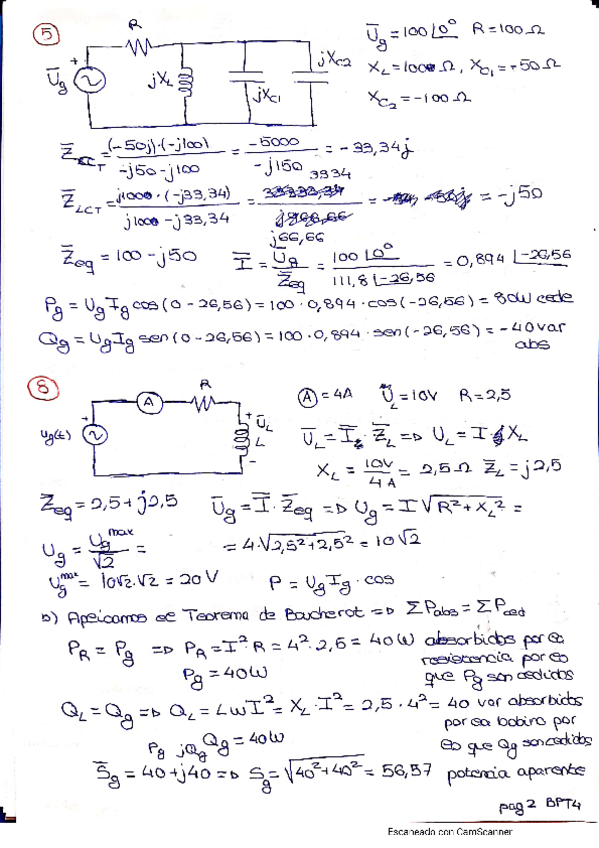 5
R
+
Ūg
jXL
jXC1
jXC2
Ūg = 100∠0° R = 100Ω
XL = 100Ω, XC1 = -50Ω
XC2 = -100Ω
Z̄CT = (-50j)·(-j100) / -j50-j100 = -5000 / -j150 = -33,34j
Z̄LCT = j100·(-j33,34) / j100-j33,34 = 3334 / j66,66 = -j50
Z̄eq = 100-j50 Ī = Ūg / Z̄eq = 100∠0° / 111,8∠-26,56 = 0,894 ∠-26,56
Pg = Ug Ig cos(0-26,56) = 100·0,894·cos(-26,56) = 80W cede
Qg = Ug Ig sen(0-26,56) = 100·0,894·sen(-26,56) = -40var
abs
8
A
R
+
ug(t)
+
ŪL
L
-
A = 4A ŪL = 10V R = 2,5
ŪL = Ī·Z̄L => UL = I·XL
XL = 10V / 4A = 2,5Ω Z̄L = j2,5
Z̄eq = 2,5+j2,5 Ūg = Ī·Z̄eq => Ug = I√R²+XL² =
Ug = Ug max / √2 = = 4·√2,5²+2,5² = 10√2
Ug max = 10√2·√2 = 20V P = Ug Ig·cos
b) Apeicamos ee Teorema de Boucherot => ΣPabs = ΣPced
PR = Pg => PR = I²·R = 4²·2,5 = 40W absorbidos por ea
resistencia por eo
Pg = 40W que Pg son cedidos
QL = Qg => QL = LωI² = XL·I² = 2,5·4² = 40 var absorbidos
por ea bobina por
Qg = 40W eo que Qg son cedidos
Pg jQg
S̄g = 40+j40 => Sg = √40²+40² = 56,57 potencia aparente
pag 2 BPT4
Escaneado con CamScanner